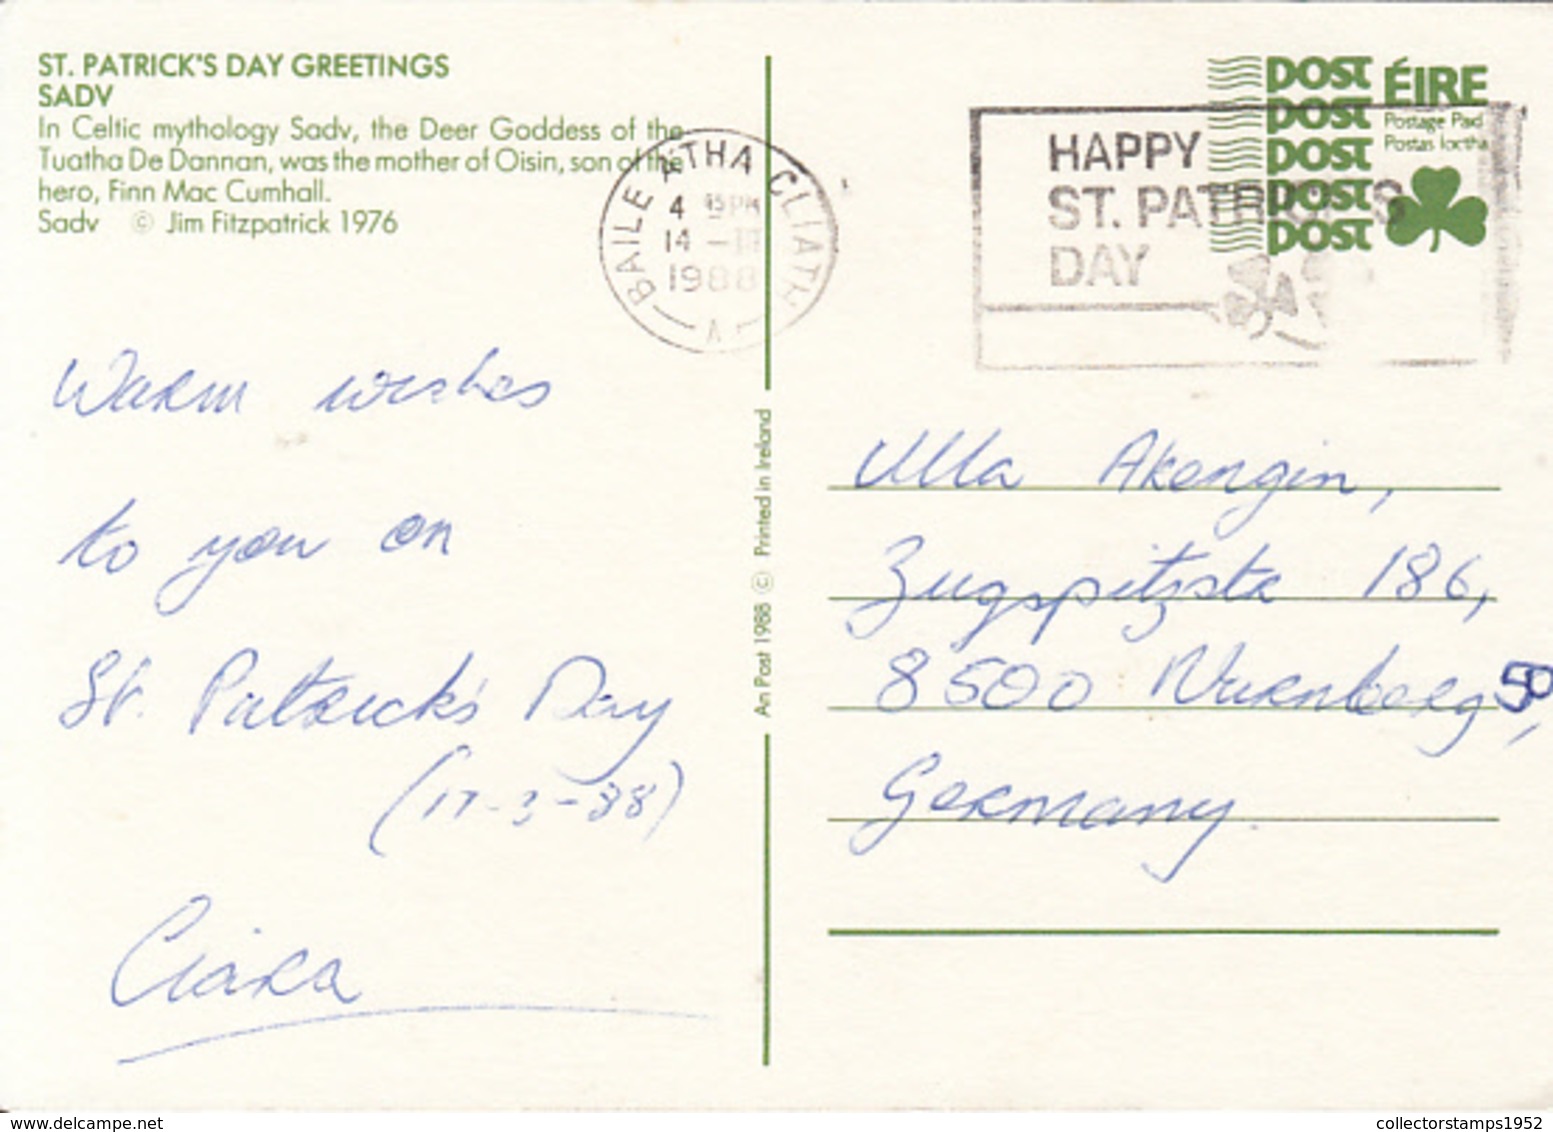 ST. PATRICK'S DAY GREETINGS
SADV
In Celtic mythology Sadv, the Deer Goddess of the
Tuatha De Dannan, was the mother of Oisin, son of the
hero, Finn Mac Cumhall.
Sadv © Jim Fitzpatrick 1976
BAILE ÁTHA CLIATH
4 45 PM
14 - III
1988
A
HAPPY
ST. PATRICK'S
DAY
post
post
post
post
post
ÉIRE
Postage Paid
Postas Íoctha
Warm wishes
to you on
St. Patrick's Day
(17-3-88)
Ciara
An Post 1988 © Printed in Ireland
Ulla Akengin,
Zugspitzstr 186,
8500 Nurnberg 50,
Germany.
delcampe.net
collectorstamps1952